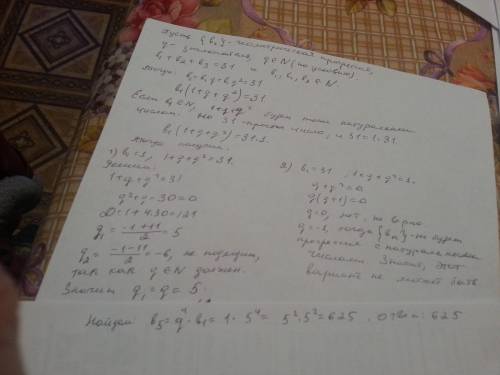 Пусть {bₙ} - геометрическая прогрессия,
q - знаменатель, q∈N (по условию).
b₁ + b₂ + b₃ = 31     b₁, b₂, b₃ ∈ N.
Тогда: b₁+b₁q+b₁q²=31
b₁(1+q+q²)=31.
Если b₁∈N, 1+q+q² будет тоже натуральным
числом. Но 31 - простое число, и 31=1·31
b₁(1+q+q²)=31·1.
Тогда получим:
1) b₁=1, 1+q+q²=31.
Решаем:
1+q+q²=31
q²+q-30=0
D=1+4·30=121
q₁ = (-1+11)/2 = 5
q₂ = (-1-11)/2 = -6, не подходит,
так как q∈N должен.
Значит q₁=q=5.
2) b₁=31, 1+q+q²=1.
q+q²=0
q(q+1)=0
q=0, нет, не верно
q=-1, тогда {bₙ} - не будет
прогрессия с натуральными
числами. Значит, этот
вариант не может быть
Найдём b₅=q⁴·b₁=1·5⁴= 5²·5²=625. Ответ: 625